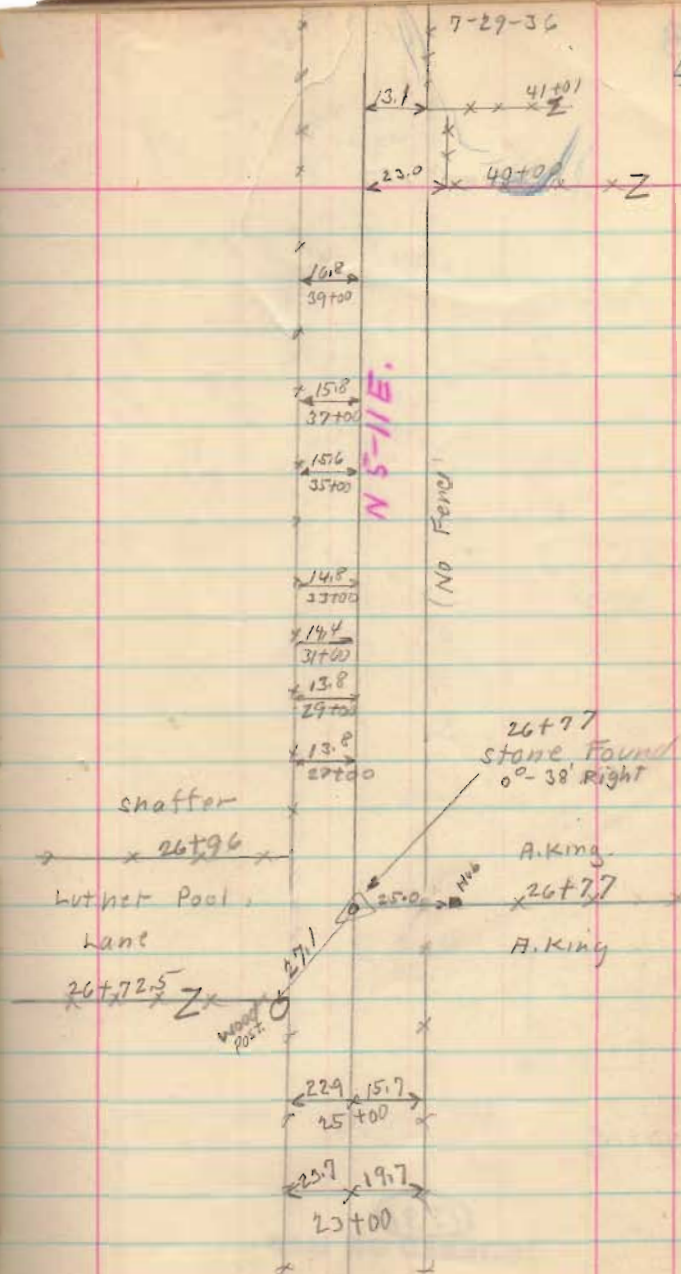 7-29-36
13.1
41+01
Z
23.0
40+00
Z
16.8
39+00
N 5-11 E.
15.8
37+00
15.6
35+00
(No Fence)
14.8
33+00
14.4
31+00
13.8
29+00
26+77
Stone Found
0°-38' Right
13.8
27+00
Shaffer
26+96
A. King
Luther Pool
Lane
25.0
Hub
26+77
A. King
27.1
26+72.5 Z
Wood
Post
22.9 15.7
25+00
23.7 19.7
23+00